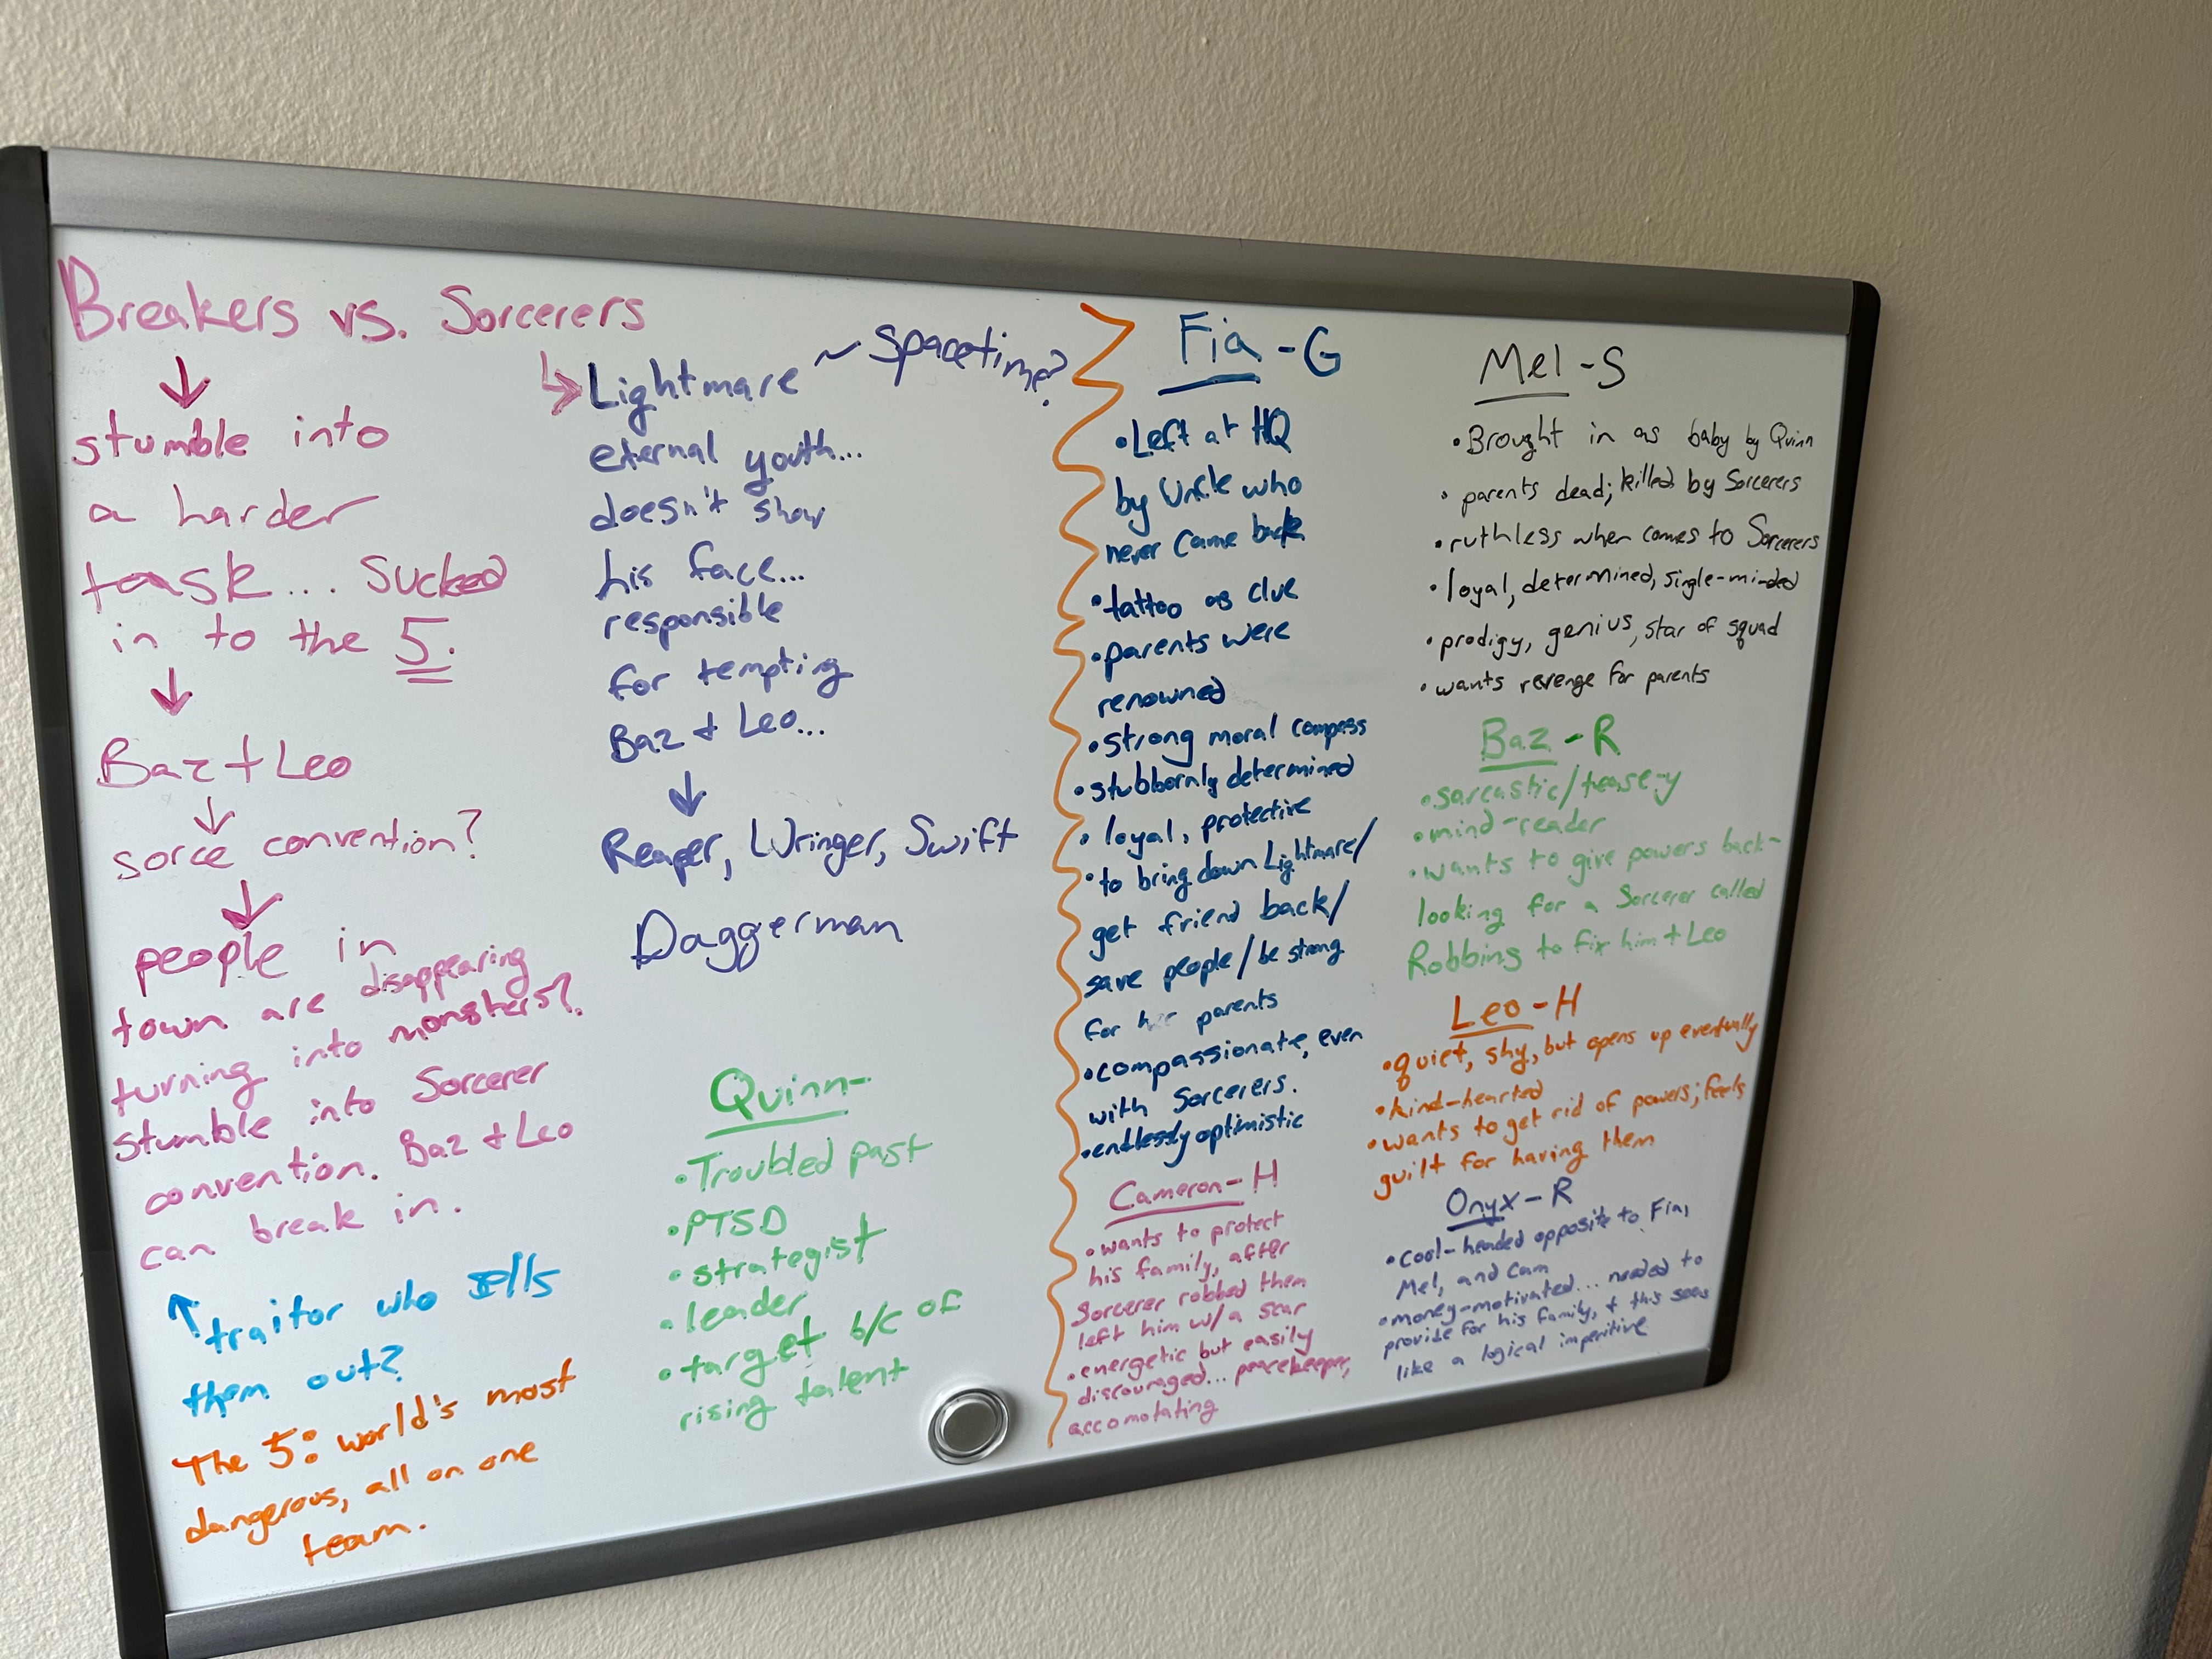 Breakers vs. Sorcerers
↓
stumble into
a harder
task... sucked
in to the 5.
↓
Baz + Leo
↓
sorce convention?
↓
people in
town are disappearing
turning into monsters?
stumble into Sorcerer
convention. Baz + Leo
can break in.
↑ traitor who sells
them out?
The 5: world's most
dangerous, all on one
team.
↳ Lightmare ~ spacetime?
eternal youth...
doesn't show
his face...
responsible
for tempting
Baz + Leo...
↓
Reaper, Wringer, Swift
Daggerman
Quinn-
• Troubled past
• PTSD
• strategist
• leader
• target b/c of
rising talent
Fia - G
• Left at HQ
by Uncle who
never came back
• tattoo as clue
• parents were
renowned
• strong moral compass
• stubbornly determined
• loyal, protective
• to bring down Lightmare/
get friend back/
save people/be strong
for her parents
• compassionate, even
with Sorcerers.
• endlessly optimistic
Cameron - H
• wants to protect
his family, after
Sorcerer robbed them
left him w/ a scar
• energetic but easily
discouraged... peacekeeper,
accomotating
Mel - S
• Brought in as baby by Quinn
• parents dead; killed by Sorcerers
• ruthless when comes to Sorcerers
• loyal, determined, single-minded
• prodigy, genius, star of squad
• wants revenge for parents
Baz - R
• sarcastic/tease-y
• mind-reader
• wants to give powers back-
looking for a Sorcerer called
Robbing to fix him + Leo
Leo - H
• quiet, shy, but opens up eventually
• kind-hearted
• wants to get rid of powers; feels
guilt for having them
Onyx - R
• cool-headed opposite to Fia,
Mel, and Cam
• money-motivated... needed to
provide for his family, + this seems
like a logical imperitive